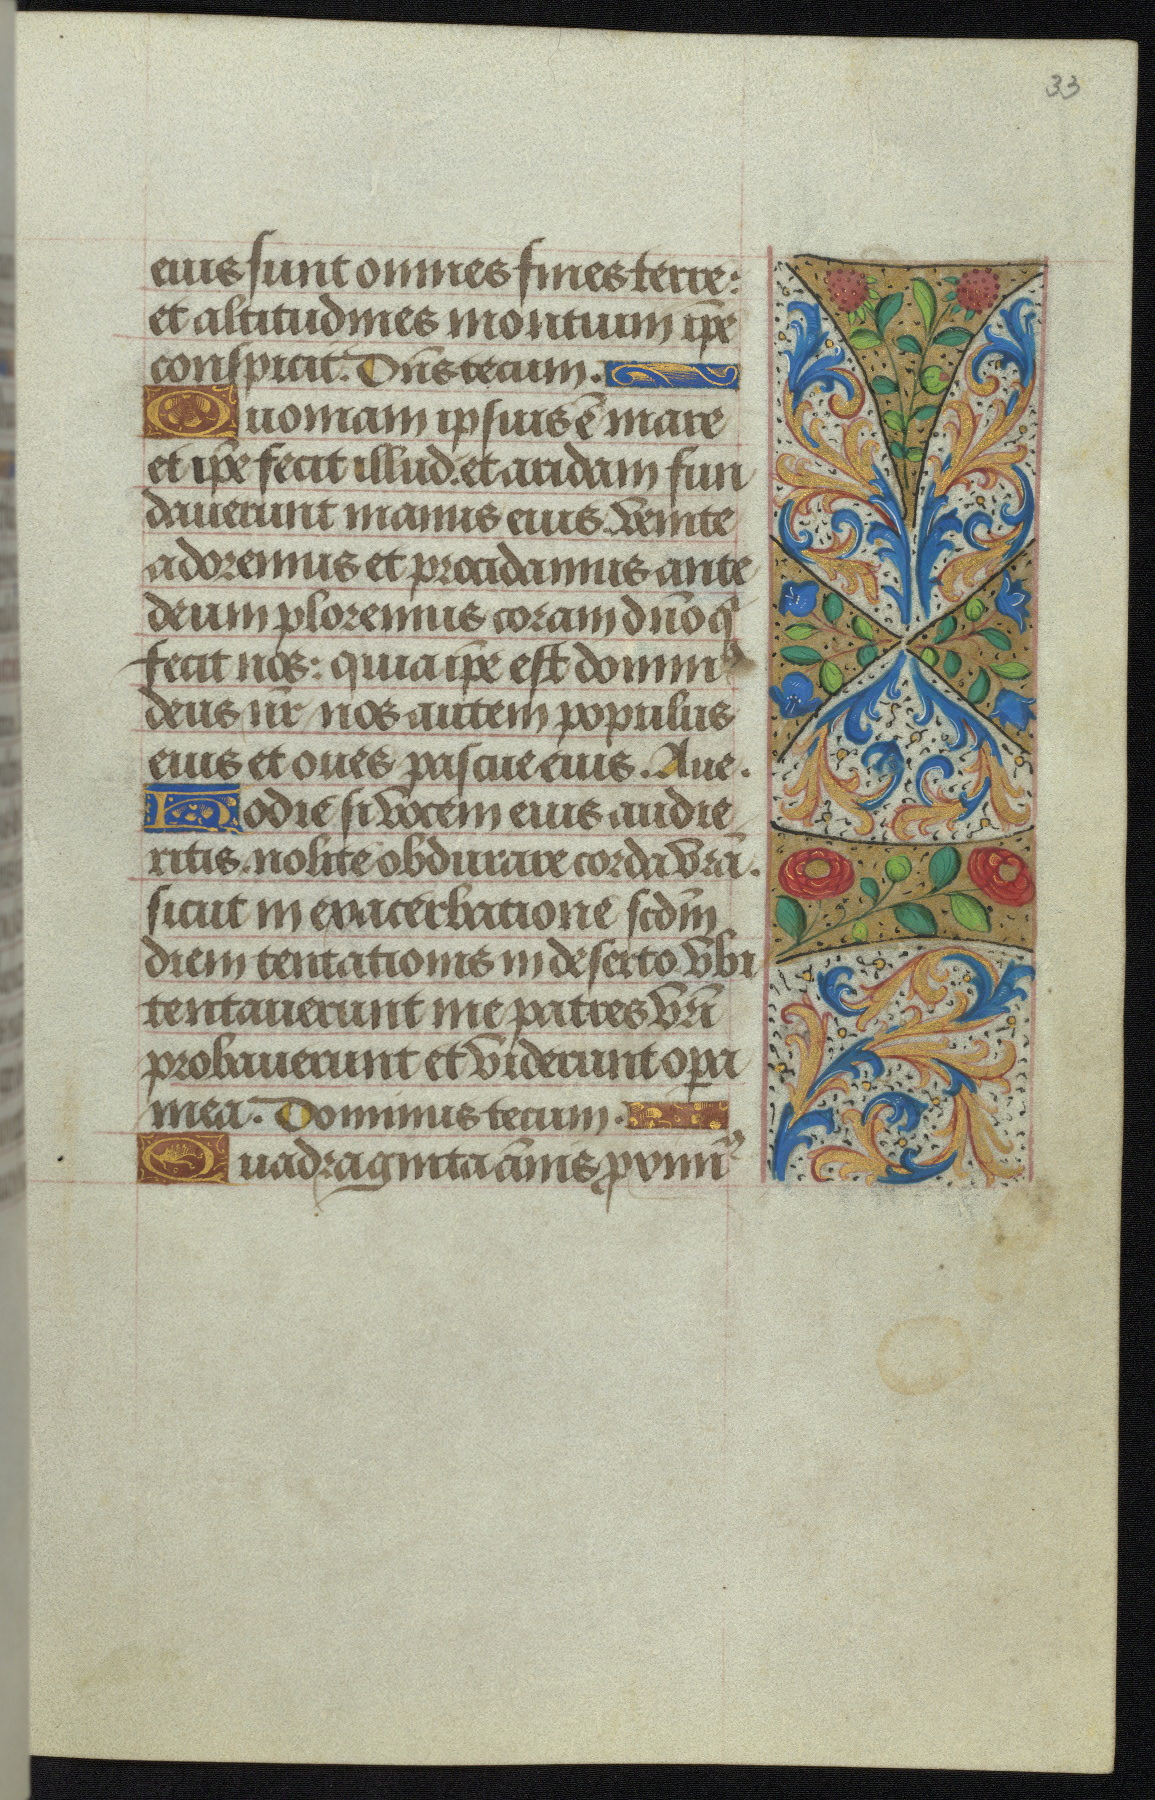 33
eius sunt omnes fines terre:
et altitudines montium ip̄e
conspicit. Dn̄s tecum.
Quoniam ipsius ē mare
et ip̄e fecit illud. et aridam fun
dauerunt manus eius. Venite
adoremus et procidamus ante
deum ploremus coram dn̄o q̄
fecit nos: quia ip̄e est domin⁹
deus nr̄ nos autem populus
eius et oues pascue eius. Aue.
Hodie si vocem eius audie
ritis. nolite obdurare corda vr̄a.
sicut in exacerbatione scd̄m
diem tentationis in deserto vbi
tentauerunt me patres vr̄i
probauerunt et viderunt opa
mea. Dominus tecum.
Quadraginta ān̄is